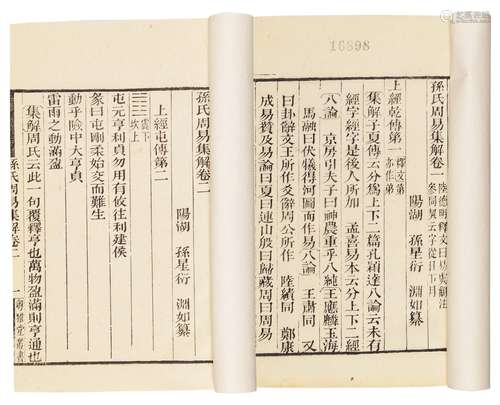 16898
孫氏周易集解卷一
陽湖 孫星衍 淵如纂
上經乾傳第一 釋文第
亦作弟
集解子夏傳云分爲上下二篇孔穎達八論云未有
經字經字是後人所加 孟喜易本云分上下二經
八論 京房引夫子曰神農重乎八純王應麟玉海
馬融曰伏犧得河圖而作易八論 王肅同 又
曰卦辭文王所作爻辭周公所作 陸績同 鄭康
成易贊及易論曰夏曰連山殷曰歸藏周曰周易
孫氏周易集解卷二
陽湖 孫星衍 淵如纂
上經屯傳第二
震下
坎上
屯元亨利貞勿用有攸往利建侯
彖曰屯剛柔始交而難生
動乎險中大亨貞
雷雨之動滿盈
集解周氏云此一句覆釋亨也萬物盈滿則亨通也
孫氏周易集解卷二 一 粵雅堂叢書